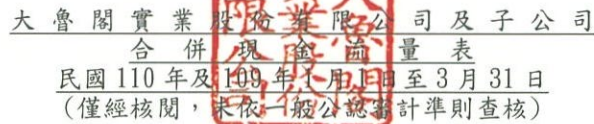 大魯閣實業股份有限公司及子公司
合併現金流量表
民國110年及109年1月1日至3月31日
(僅經核閱，未依一般公認審計準則查核)